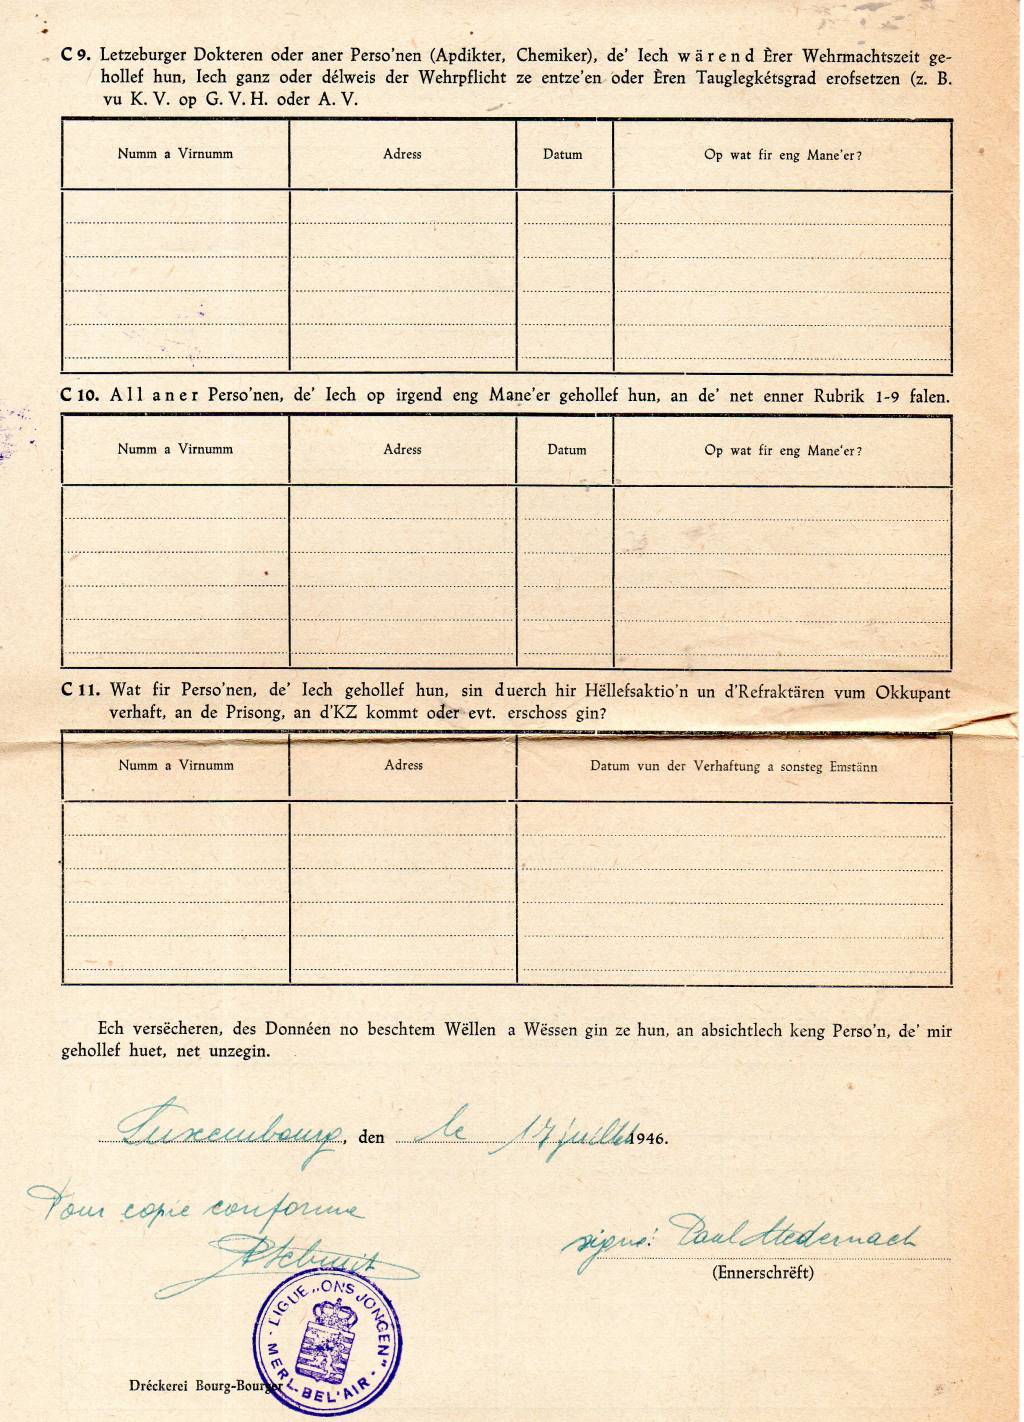 C 9. Letzeburger Dokteren oder aner Perso'nen (Apdikter, Chemiker), de' Iech wärend Èrer Wehrmachtszeit ge-
hollef hun, Iech ganz oder délweis der Wehrpflicht ze entze'en oder Èren Tauglegkétsgrad erofsetzen (z. B.
vu K. V. op G. V. H. oder A. V.
Numm a Virnumm Adress Datum Op wat fir eng Mane'er?
C 10. All aner Perso'nen, de' Iech op irgend eng Mane'er gehollef hun, an de' net enner Rubrik 1-9 falen.
Numm a Virnumm Adress Datum Op wat fir eng Mane'er?
C 11. Wat fir Perso'nen, de' Iech gehollef hun, sin duerch hir Hëllefsaktio'n un d'Refraktären vum Okkupant
verhaft, an de Prisong, an d'KZ kommt oder evt. erschoss gin?
Numm a Virnumm Adress Datum vun der Verhaftung a sonsteg Emstänn
Ech versëcheren, des Donnéen no beschtem Wëllen a Wëssen gin ze hun, an absichtlech keng Perso'n, de' mir
gehollef huet, net unzegin.
Luxembourg, den le 17 juillet 1946.
Pour copie conforme
signé: Paul Medernach
(Ennerschrëft)
LIGUE „ONS JONGEN"
MERL-BEL'AIR
Dréckerei Bourg-Bourger